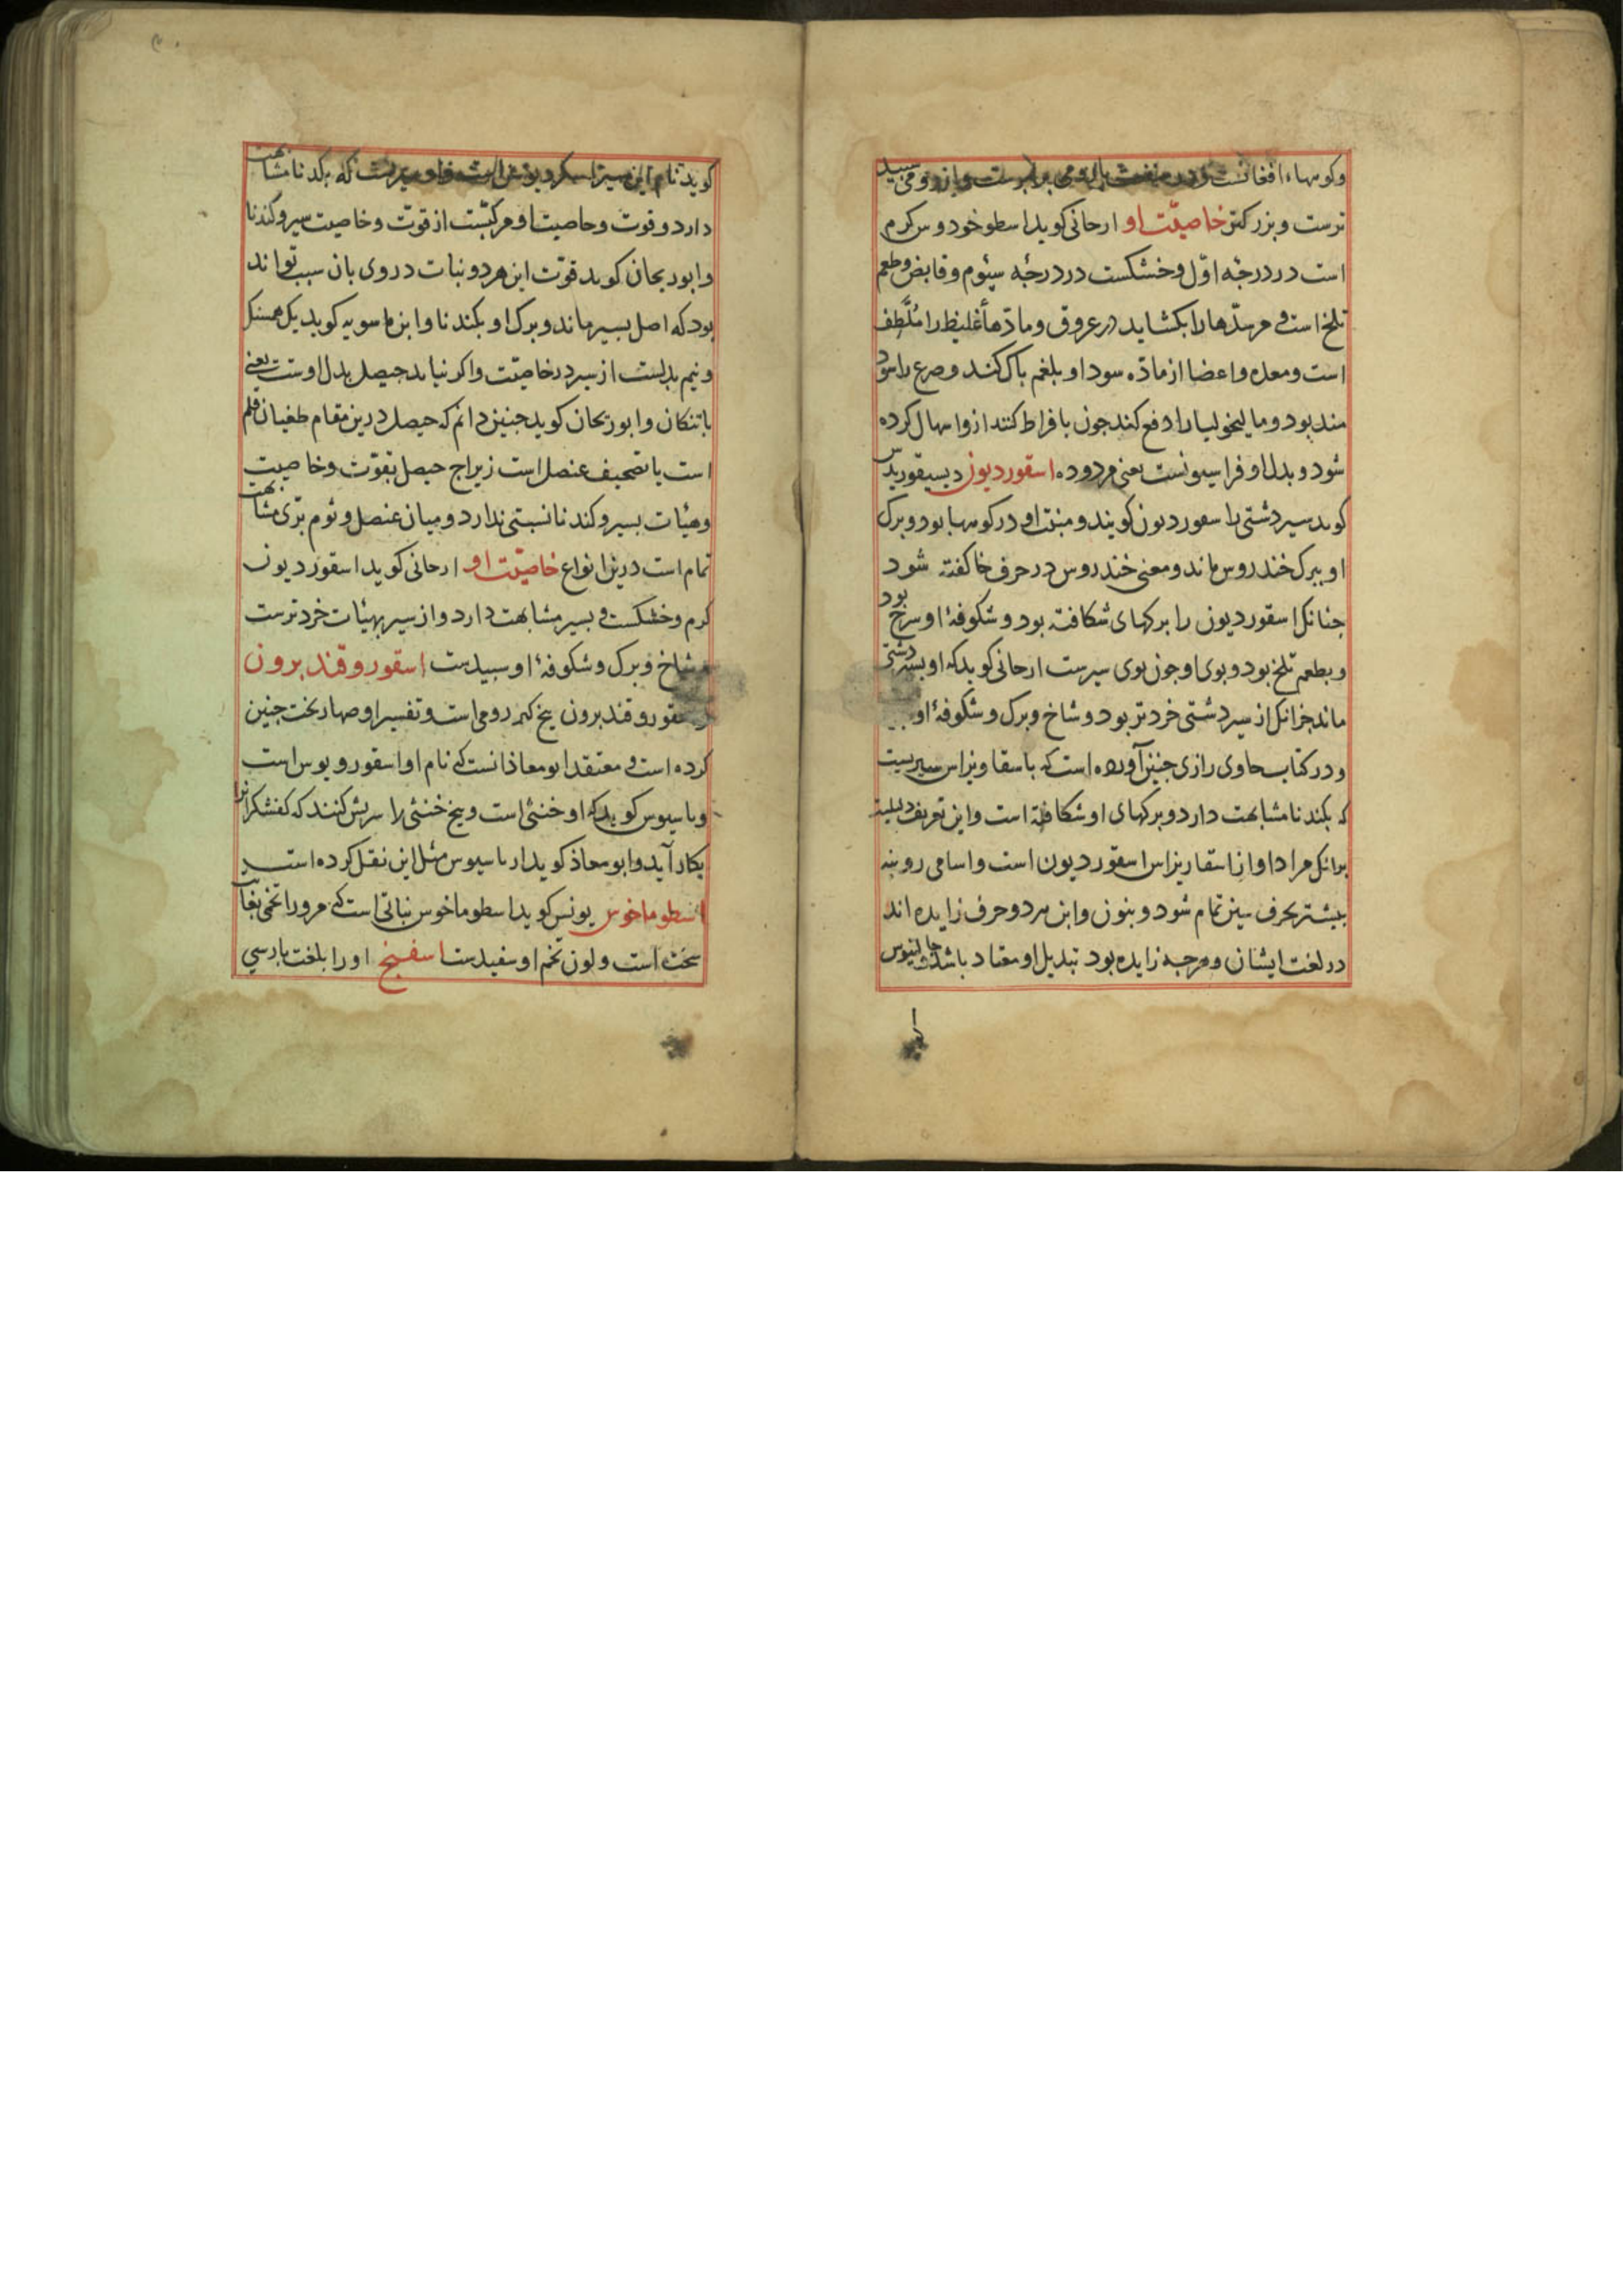 وکوهها افغانست و در منفعت با رومی برابرست و از رومی سبید
ترست و بزرکتر خاصیّت او ارحانی کوید اسطوخودوس کرم
است در درجّه اوّل و خشکست در درجّه سیّوم و قابض و طعم
تلخ است و مر سدّها را بکشاید در عروق و مادّهاء غلیظ را مُلَّطف
است و معده و اعضا از مادّه سودا و بلغم باک کند و صرع را سود
مند بود و مالیخولیا را دفع کند جون بافراط کنند ازو اسهال کرده
شود و بدل او فراسیونست بعنی مردوده اسقوردیون دیسیقوریدس
کوید سیر دشتی را سقوردیون کویند و منبت او در کوهها بود و برک
او ببرک خندروس ماند و معنی خندروس در حرف خا کفته شود
جنانک اسقوردیون را برکهای شکافته بود و شکوفۀ او سرخ بود
و بطعم تلخ بود و بوی او جون بوی سیرست ارحانی کوید که او بسیر دشتی
ماند جزانک از سیر دشتی خردتر بود و شاخ و برک و شکوفۀ او
و در کتاب حاوی رازی جنین آورده است که باسقاویزاس سیریست
که بکندنا مشابهت دارد و برکهای او شکافته است و این تعریف دلیلیست
برانک مراد او از اسقاریزاس اسقوردیون است و اسامی رومیه
بیشتر بحرف سین تمام شود و بنون و این هر دو حرف زایده اند
در لغت ایشان و هرجه زایده بود تبدیل او معتاد باشد و جالینوس
کوید نام این سیر اسکردیوس است و او سیریست که بکدنا مشابهت
دارد و قوت و خاصیت او مرکبّست از قوّت و خاصیت سیر و کندنا
و ابوریحان کوید قوّت این هر دو نبات در وی بان سبب تواند
بود که اصل بسیر ماند و برک او بکندنا و ابن ماسویه کوید یک همسنک
و نیم بدلست از سیر در خاصیّت و اکر نیابد حیصل بدل اوست یعنی
باتنکان و ابوریحان کوید جنین دانم که حیصل درین مقام طغیان قلم
است یا تصحیف عنصل است زیراج حیصل بقوّت و خاصیت
و هیٔات بسیر و کندنا نسبتی ندارد و میان عنصل و ثوم برّی مشابهت
تمام است درین انواع خاصیّت او ارحانی کوید اسقوردیون
کرم و خشکست و بسیر مشابهت دارد و از سیر بهیٔات خردترست
و شاخ و برک و شکوفۀ او سبیدست اسقوروقندبرون
اسقوروقندبرون بیخ کبر رومی است و تفسیر او صهاربخت جنین
کرده است و معتقد ابومعاذ انست که نام او اسقورویوس است
و باسیوس کوید که او خنثی است و بیخ خنثی را سریش کنند که کفشکرانرا
بکار آید و ابومعاذ کوید ارباسیوس مثل این نقل کرده است
اسطوماخوس یونس کوید اسطوماخوس نباتی است که مرورا تخمی بغایت
سخت است و لون تخم او سفیدست اسفنج اورا بلغت بارسی